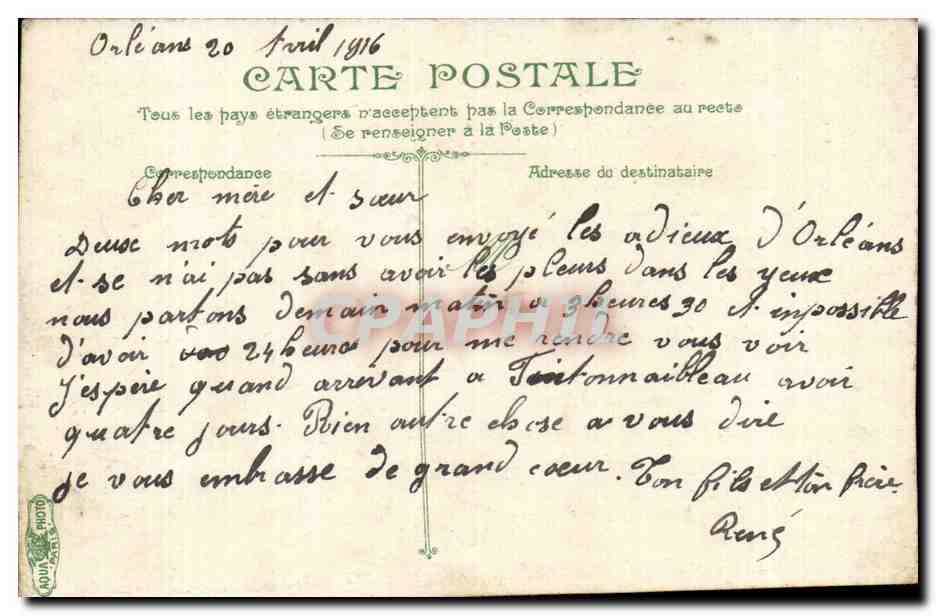 Orléans 20 Avril 1916
CARTE POSTALE
Tous les pays étrangers n'acceptent pas la Correspondance au recto
(Se renseigner à la Poste)
Correspondance
Adresse du destinataire
Cher mère et sœur
Deux mots pour vous envoyé les adieux d'Orléans
et se n'ai pas sans avoir les pleurs dans les yeux
nous partons demain matin a 3 heures 30 et inpossible
d'avoir 24 heure pour me rendre vous voir
J'espère quand arrêvant a Fintonnaibleau avoir
quatre jours. Rien autre chose a vous dire
je vous embrasse de grand cœur. Ton fils et ton frère
René
AQUA PHOTO
PARIS
CPAPHIL